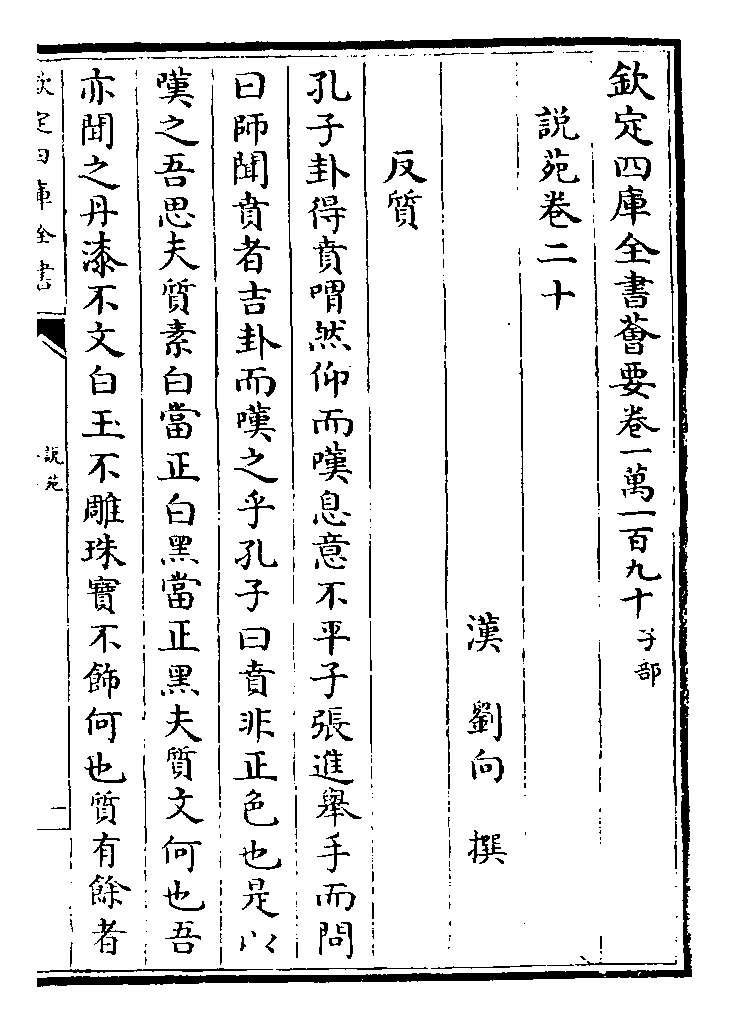 欽定四庫全書薈要卷一萬一百九十子部
説苑卷二十
漢劉向撰
反質
孔子卦得賁喟然仰而嘆息意不平子張進舉手而問
曰師聞賁者吉卦而嘆之乎孔子曰賁非正色也是以
嘆之吾思夫質素白當正白黑當正黑夫質文何也吾
亦聞之丹漆不文白玉不雕珠寳不飾何也質有餘者
欽定四庫全書
説苑
一